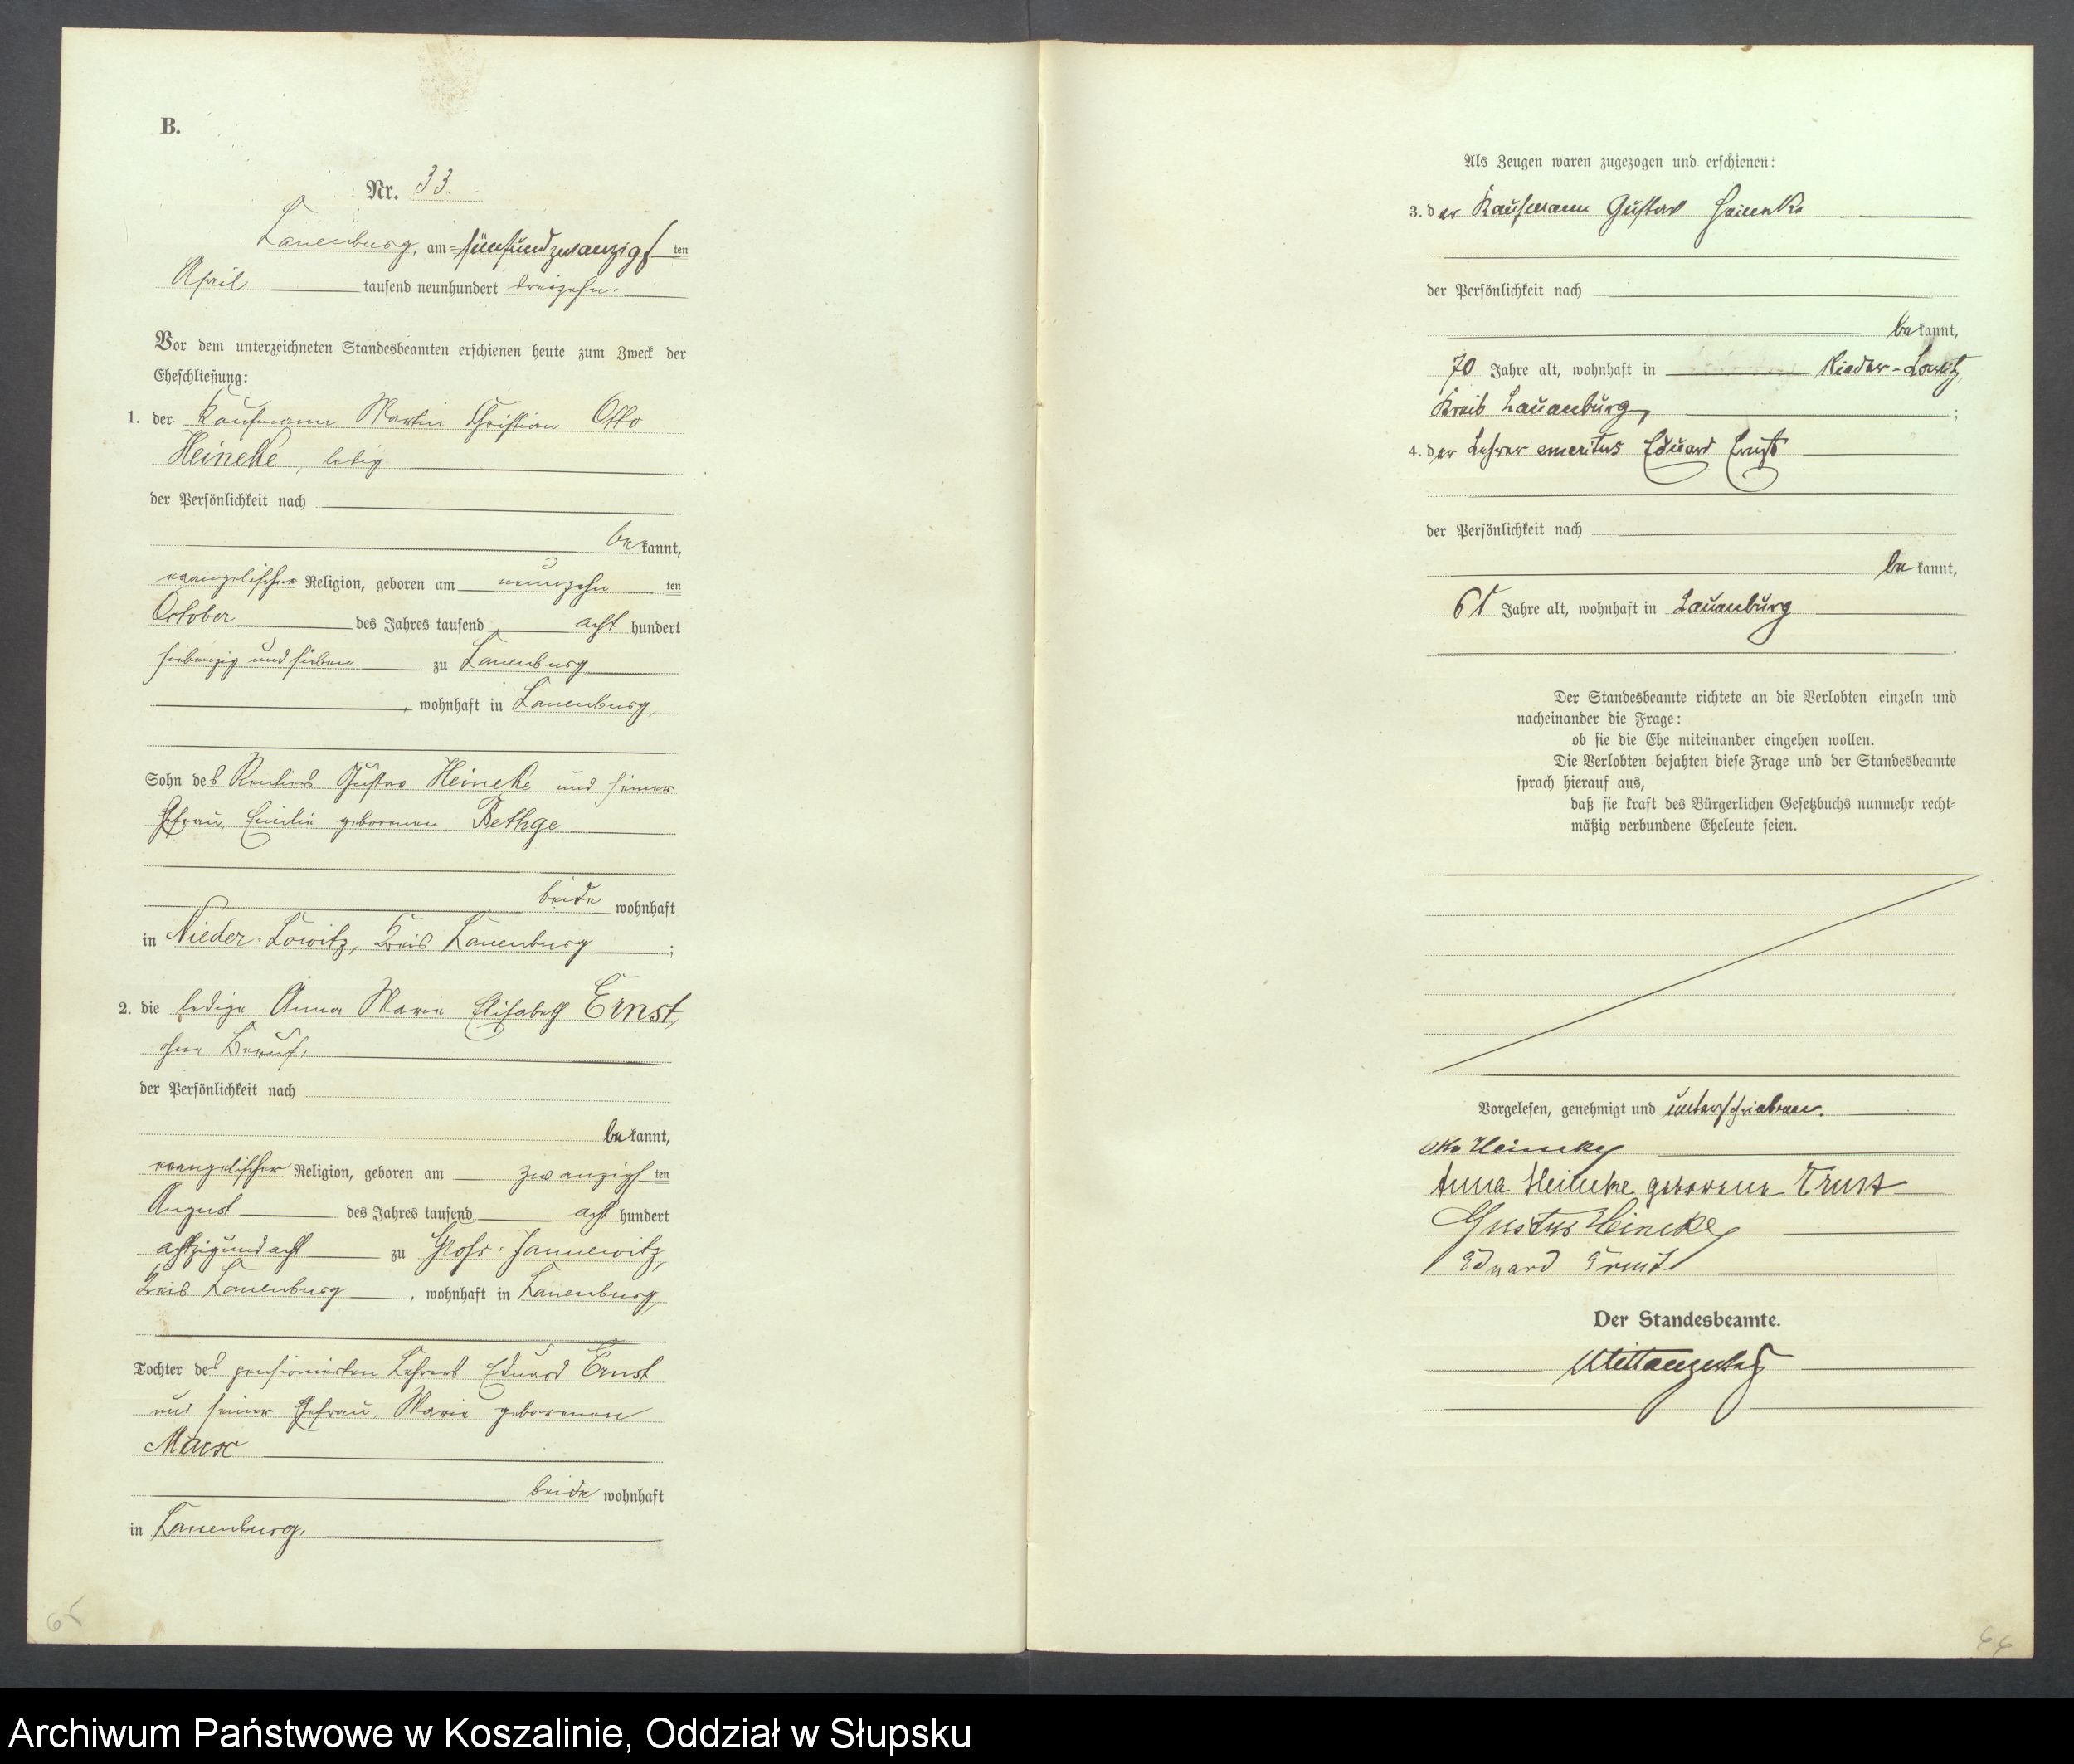 B.
Nr. 33.
Lauenburg, am fünfundzwanzigsten
April tausend neunhundert dreizehn.
Vor dem unterzeichneten Standesbeamten erschienen heute zum Zweck der
Eheschließung:
1. der Kaufmann Martin Christian Otto
Heineke, ledig
der Persönlichkeit nach
bekannt,
evangelischer Religion, geboren am neunzehnten
October des Jahres tausend acht hundert
siebenzig und sieben zu Lauenburg
, wohnhaft in Lauenburg,
Sohn des Rentiers Gustav Heineke und seiner
Ehefrau, Emilie geborenen Bethge
beide wohnhaft
in Nieder-Lowitz, Kreis Lauenburg ;
2. die ledige Anna Marie Elisabeth Ernst,
ohne Beruf,
der Persönlichkeit nach
bekannt,
evangelischer Religion, geboren am zwanzigsten
August des Jahres tausend acht hundert
achtzig und acht zu Groß-Jannewitz,
Kreis Lauenburg , wohnhaft in Lauenburg,
Tochter des pensionierten Lehrers Eduard Ernst
und seiner Ehefrau, Marie geborenen
Marx
beide wohnhaft
in Lauenburg.
65
Als Zeugen waren zugezogen und erschienen:
3. der Kaufmann Gustav Heineke
der Persönlichkeit nach
bekannt,
70 Jahre alt, wohnhaft in Nieder-Lowitz,
Kreis Lauenburg, ;
4. der Lehrer emeritus Eduard Ernst
der Persönlichkeit nach
bekannt,
61 Jahre alt, wohnhaft in Lauenburg
.
Der Standesbeamte richtete an die Verlobten einzeln und
nacheinander die Frage:
ob sie die Ehe miteinander eingehen wollen.
Die Verlobten bejahten diese Frage und der Standesbeamte
sprach hierauf aus,
daß sie kraft des Bürgerlichen Gesetzbuchs nunmehr recht-
mäßig verbundene Eheleute seien.
Vorgelesen, genehmigt und unterschrieben.
Otto Heineke
Anna Heineke geborene Ernst
Gustav Heineke
Eduard Ernst
Der Standesbeamte.
66
Archiwum Państwowe w Koszalinie, Oddział w Słupsku